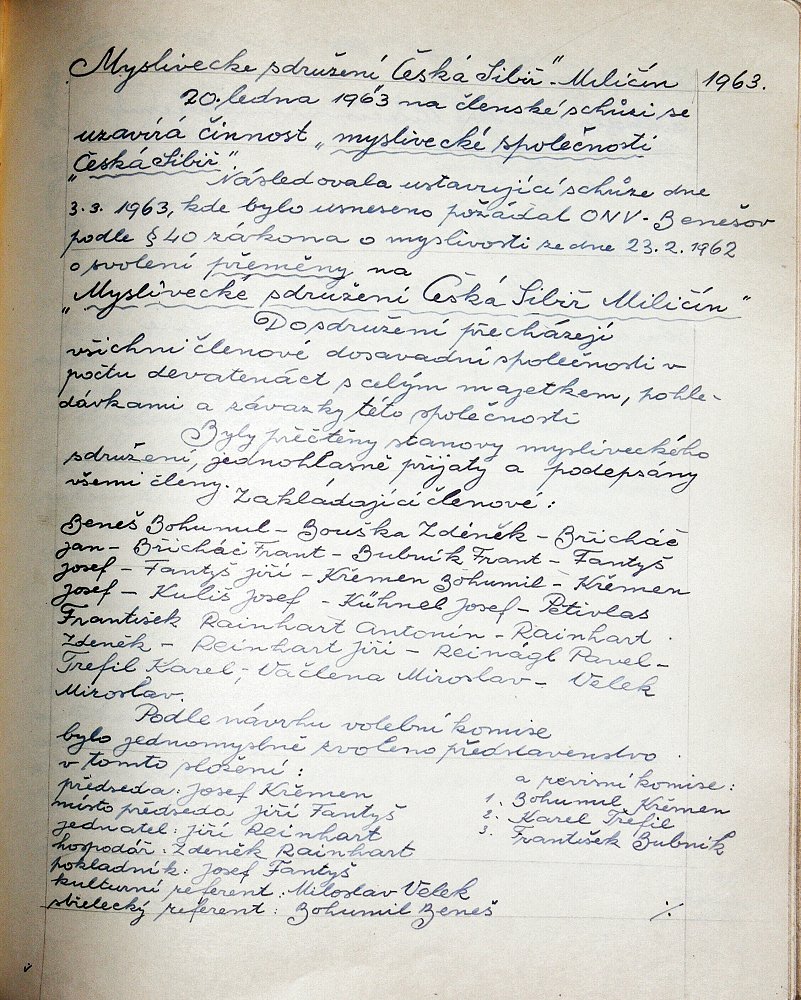 Myslivecke sdružení „Česká Sibiř" - Miličín 1963.
20. ledna 1963 na členské schůzi se
uzavírá činnost „myslivecké společnosti
„Česká Sibiř".
Následovala ustavující schůze dne
3.3. 1963, kde bylo usneseno požádat ONV - Benešov
podle § 40 zákona o myslivosti ze dne 23.2. 1962
o svolení přeměny na
„Myslivecké sdružení Česká Sibiř Miličín"
Do sdružení přecházejí
všichni členové dosavadní společnosti v
počtu devatenáct s celým majetkem, pohle-
dávkami a závazky této společnosti
Byly přečtěny stanovy mysliveckého
sdružení, jednohlasně přijaty a podepsány
všemi členy.
Zakládající členové :
Beneš Bohumil - Bouška Zdeněk - Břicháč
Jan - Břicháč Frant - Bubník Frant - Fantyš
Josef - Fantyš Jiří - Křemen Bohumil - Křemen
Josef - Kuliš Josef - Kühnel Josef - Petivlas
František Rainhart Antonín - Rainhart
Zdeněk - Reinhart Jiří - Reinágl Pavel -
Trefil Karel; Václena Miroslav - Velek
Miroslav.
Podle návrhu volební komise
bylo jednomyslně zvoleno představenstvo
v tomto složení :
předseda : Josef Křemen
místo předseda Jiří Fantyš
jednatel : Jiří Reinhart
hospodář : Zdeněk Rainhart
pokladník : Josef Fantyš
kulturní referent : Miloslav Velek
střelecký referent : Bohumil Beneš
a revisní komise :
1. Bohumil Křemen
2. Karel Trefil
3. František Bubník
·/·